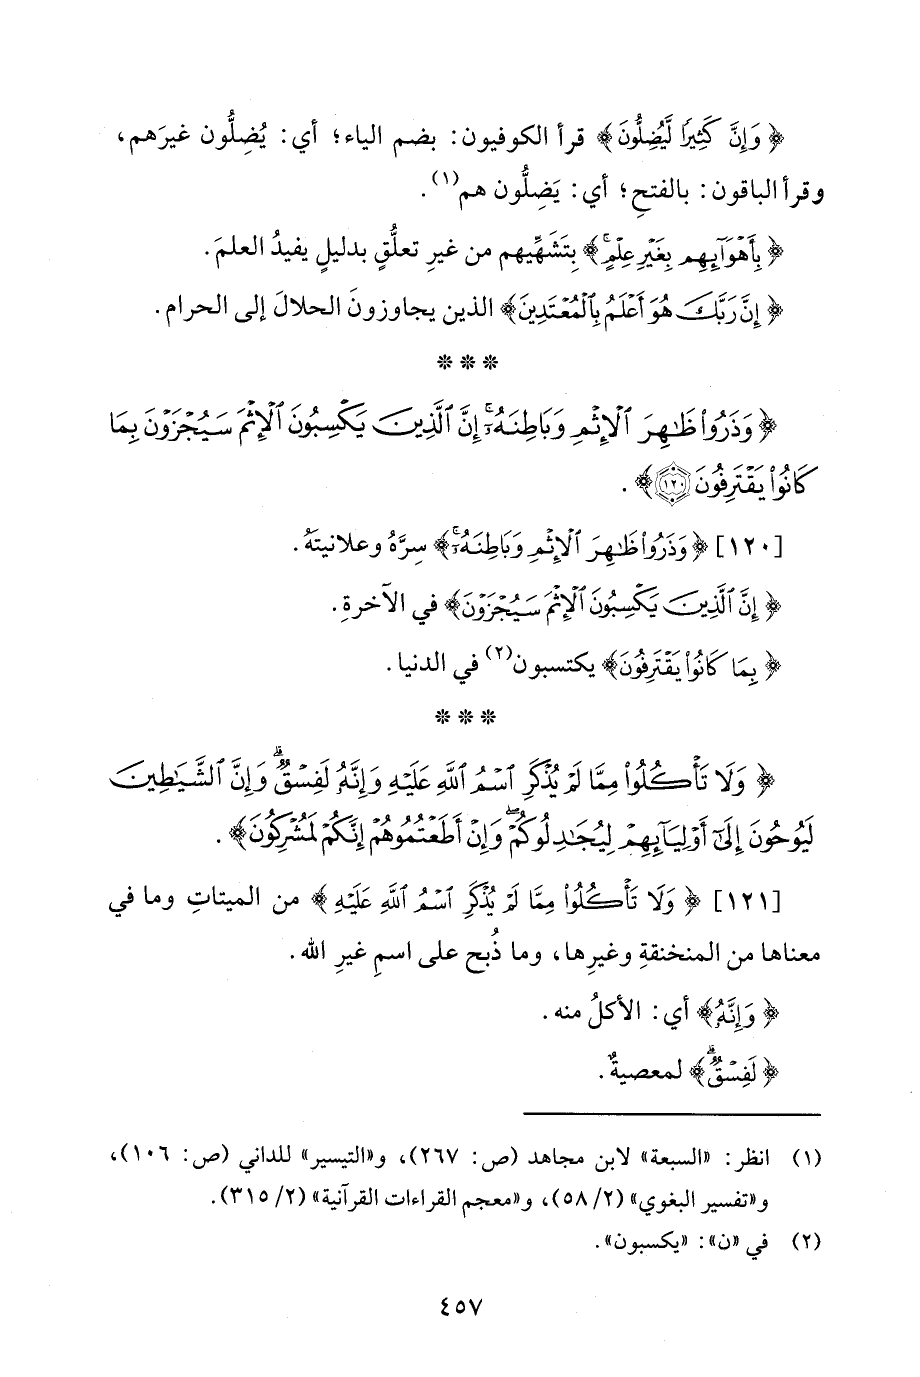 ﴿وَإِنَّ كَثِيرًا لَّيُضِلُّونَ﴾ قرأ الكوفيون: بضم الياء؛ أي: يُضِلُّون غيرَهم،
وقرأ الباقون: بالفتحِ؛ أي: يَضِلُّون هم(١).
﴿بِأَهْوَآئِهِم بِغَيْرِ عِلْمٍ﴾ بِتَشَهِّيهم من غيرِ تعلُّقٍ بدليلٍ يفيدُ العلمَ.
﴿إِنَّ رَبَّكَ هُوَ أَعْلَمُ بِٱلْمُعْتَدِينَ﴾ الذين يجاوزونَ الحلالَ إلى الحرام.
* * *
﴿وَذَرُوا۟ ظَٰهِرَ ٱلْإِثْمِ وَبَاطِنَهُۥٓ ۚ إِنَّ ٱلَّذِينَ يَكْسِبُونَ ٱلْإِثْمَ سَيُجْزَوْنَ بِمَا
كَانُوا۟ يَقْتَرِفُونَ ١٢٠﴾.
[١٢٠] ﴿وَذَرُوا۟ ظَٰهِرَ ٱلْإِثْمِ وَبَاطِنَهُۥٓ ۚ﴾ سِرَّهُ وعلانيتَهُ.
﴿إِنَّ ٱلَّذِينَ يَكْسِبُونَ ٱلْإِثْمَ سَيُجْزَوْنَ﴾ في الآخرةِ.
﴿بِمَا كَانُوا۟ يَقْتَرِفُونَ﴾ يكتسبون(٢) في الدنيا.
* * *
﴿وَلَا تَأْكُلُوا۟ مِمَّا لَمْ يُذْكَرِ ٱسْمُ ٱللَّهِ عَلَيْهِ وَإِنَّهُۥ لَفِسْقٌ ۗ وَإِنَّ ٱلشَّيَٰطِينَ
لَيُوحُونَ إِلَىٰٓ أَوْلِيَآئِهِمْ لِيُجَٰدِلُوكُمْ ۖ وَإِنْ أَطَعْتُمُوهُمْ إِنَّكُمْ لَمُشْرِكُونَ﴾.
[١٢١] ﴿وَلَا تَأْكُلُوا۟ مِمَّا لَمْ يُذْكَرِ ٱسْمُ ٱللَّهِ عَلَيْهِ﴾ من الميتاتِ وما في
معناها من المنخنقةِ وغيرِها، وما ذُبح على اسمِ غيرِ الله.
﴿وَإِنَّهُۥ﴾ أي: الأكلُ منه.
﴿لَفِسْقٌ ۗ﴾ لمعصيةٌ.
(١) انظر: «السبعة» لابن مجاهد (ص: ٢٦٧)، و«التيسير» للداني (ص: ١٠٦)،
و«تفسير البغوي» (٢/ ٥٨)، و«معجم القراءات القرآنية» (٢/ ٣١٥).
(٢) في «ن»: «يكسبون».
٤٥٧